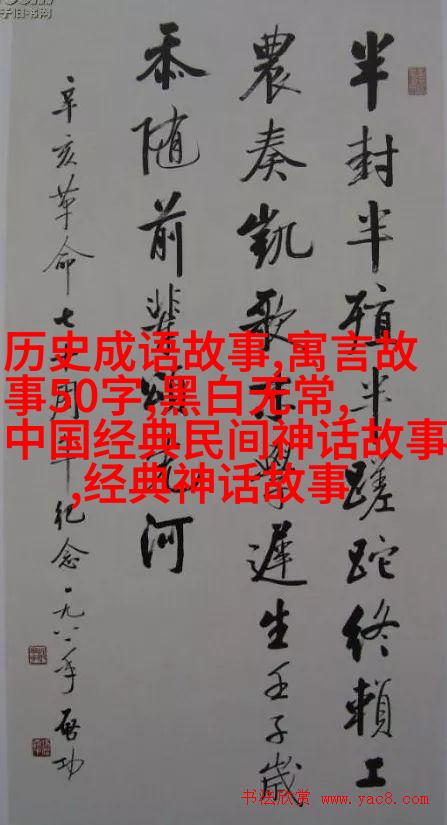 半封半殖半蹉跎终賴工
農奏凱歌末學遲生壬子歲
忝随前輩頌先河
辛亥革命七十周年纪念一九八一年 啟功
历史成语故事,寓言故
事50字,黑白无常,
中国经典民间神话故事
,经典神话故事
书法欣赏 www.yac8.com